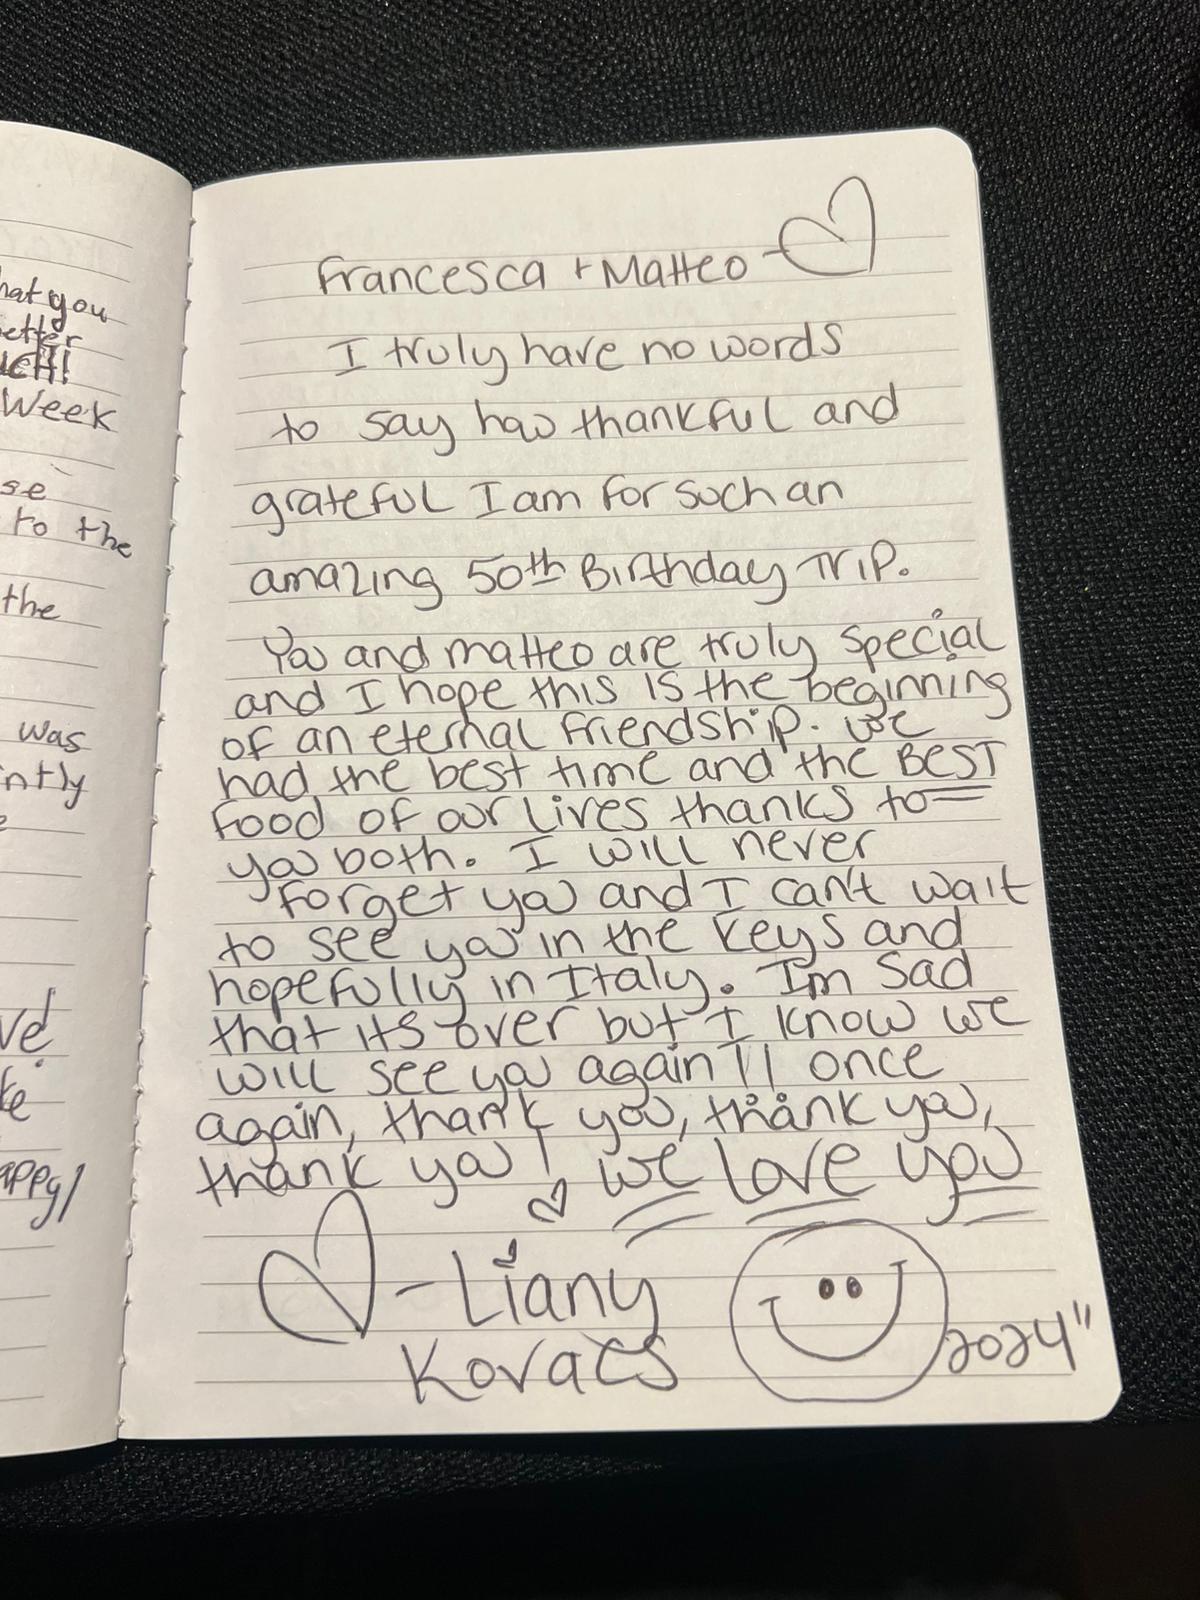 hat you
etter
UCH!
Week
se
to the
the
was
ntly
ve
ke
appy!
Francesca + Matteo -
I truly have no words
to say how thankful and
grateful I am for such an
amazing 50th Birthday Trip.
You and matteo are truly special
and I hope this is the beginning
of an eternal friendship. we
had the best time and the BEST
food of our lives thanks to
you both. I will never
forget you and I can't wait
to see you in the Keys and
hopefully in Italy. Im sad
that its over but I know we
will see you again!! once
again, thank you, thank you,
thank you! we love you
- Liany
Kovacs
2024"